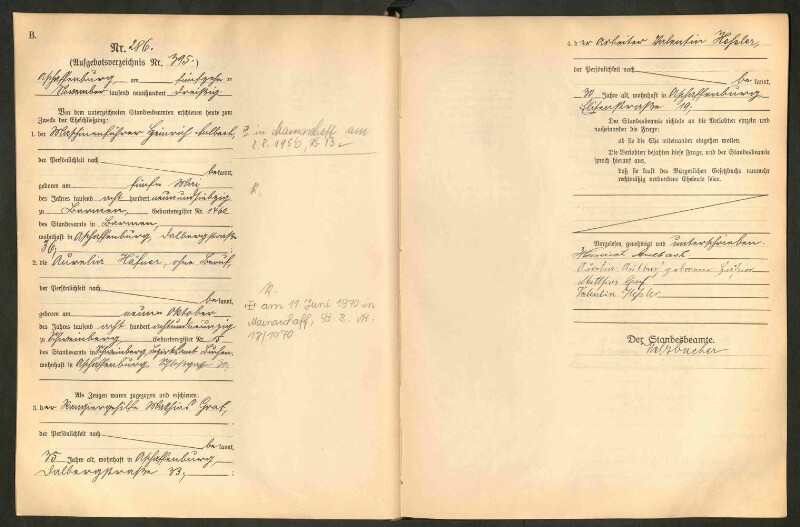 B.
Nr. 286.
(Aufgebotsverzeichnis Nr. 395.)
Aschaffenburg, am fünfzehn =
November tausend neunhundert dreißig
Vor dem unterzeichneten Standesbeamten erschienen heute zum
Zwecke der Eheschließung:
1. der Maschinenführer Heinrich
der Persönlichkeit nach
bekannt,
geboren am fünfte Mai
des Jahres tausend acht hundert neunundsiebzig
zu Barmen, Geburtsregister Nr. 1460
des Standesamts in Barmen,
wohnhaft in Aschaffenburg, Dalbergstraße
36,
2. die Aurelia Häfner, ohne Beruf,
der Persönlichkeit nach
bekannt,
geboren am neunten Oktober
des Jahres tausend acht hundert achtundneunzig
zu Schweinberg Geburtsregister Nr. 15
des Standesamts in Schweinberg, Bezirksamt Buchen,
wohnhaft in Aschaffenburg,
Als Zeugen waren zugezogen und erschienen:
3. der Rangiergehilfe Mathias Graf,
der Persönlichkeit nach
bekannt,
35 Jahre alt, wohnhaft in Aschaffenburg,
Dalbergstraße 33,
in Mainaschaff am
8.8.1956, Nr. 13
K.
K.
am 11. Juni 1970 in
Mainaschaff, St. B.
18/1970
4. der Arbeiter Valentin Heßler,
der Persönlichkeit nach
bekannt,
30 Jahre alt, wohnhaft in Aschaffenburg
19,
Der Standesbeamte richtete an die Verlobten einzeln und
nacheinander die Frage:
ob sie die Ehe miteinander eingehen wollen.
Die Verlobten bejahten diese Frage, und der Standesbeamte
sprach hierauf aus,
daß sie kraft des Bürgerlichen Gesetzbuchs nunmehr
rechtmäßig verbundene Eheleute seien.
Vorgelesen, genehmigt und unterschrieben.
Aurelia geborene Häfner
Matthias Graf
Valentin Heßler
Der Standesbeamte.